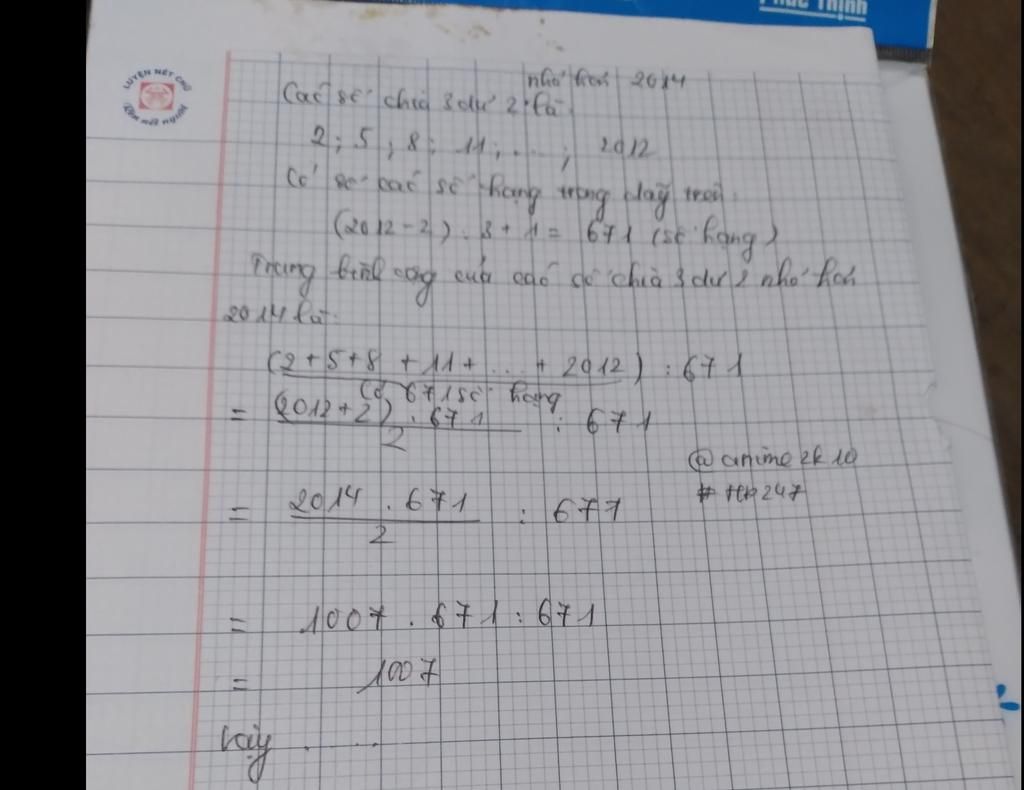 Phúc Thịnh
LUYỆN NẾT CHỮ
Rèn nết người
nhỏ hơn 2014
Các số chia 3 dư 2 là
2; 5; 8; 11; ...; 2012
Có số các số hạng trong dãy trên:
(2012 - 2) : 3 + 1 = 671 (số hạng)
Trung bình cộng của các số chia 3 dư 2 nhỏ hơn
2014 là:
(2 + 5 + 8 + 11 + ... + 2012) : 671
Có 671 số hạng
= (2012 + 2) . 671 / 2 : 671
@anime2k10
= 2014 . 671 / 2 : 671
= 1007 . 671 : 671
= 1007
Vậy .....